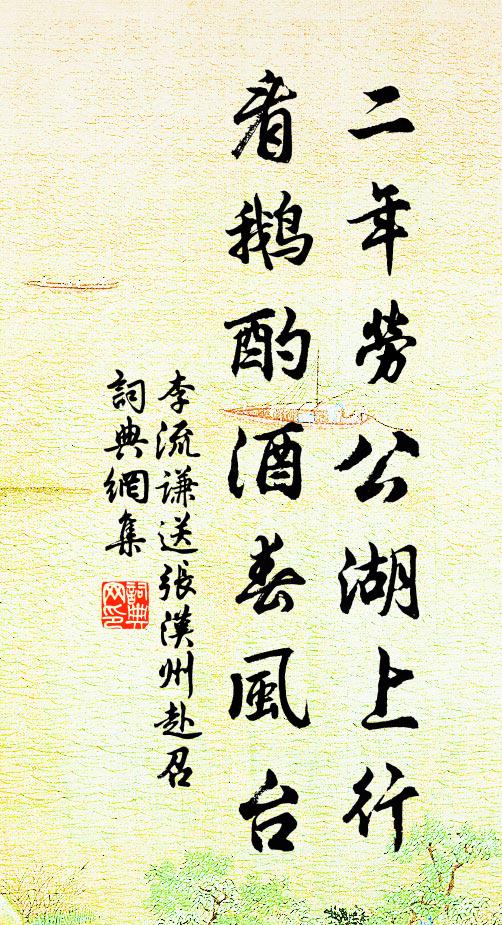 二年勞公湖上行
看鵝酌酒春風台
李流謙送張漢州赴召
詞典網集
詞典网印